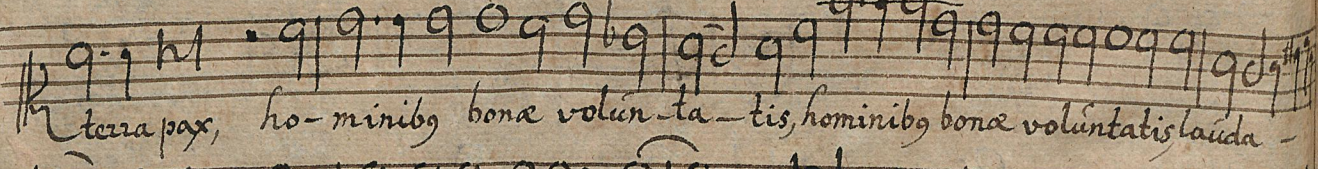 terra pax, ho-minibꝯ bonæ volun-ta-tis, hominibꝯ bonæ voluntatis lauda-